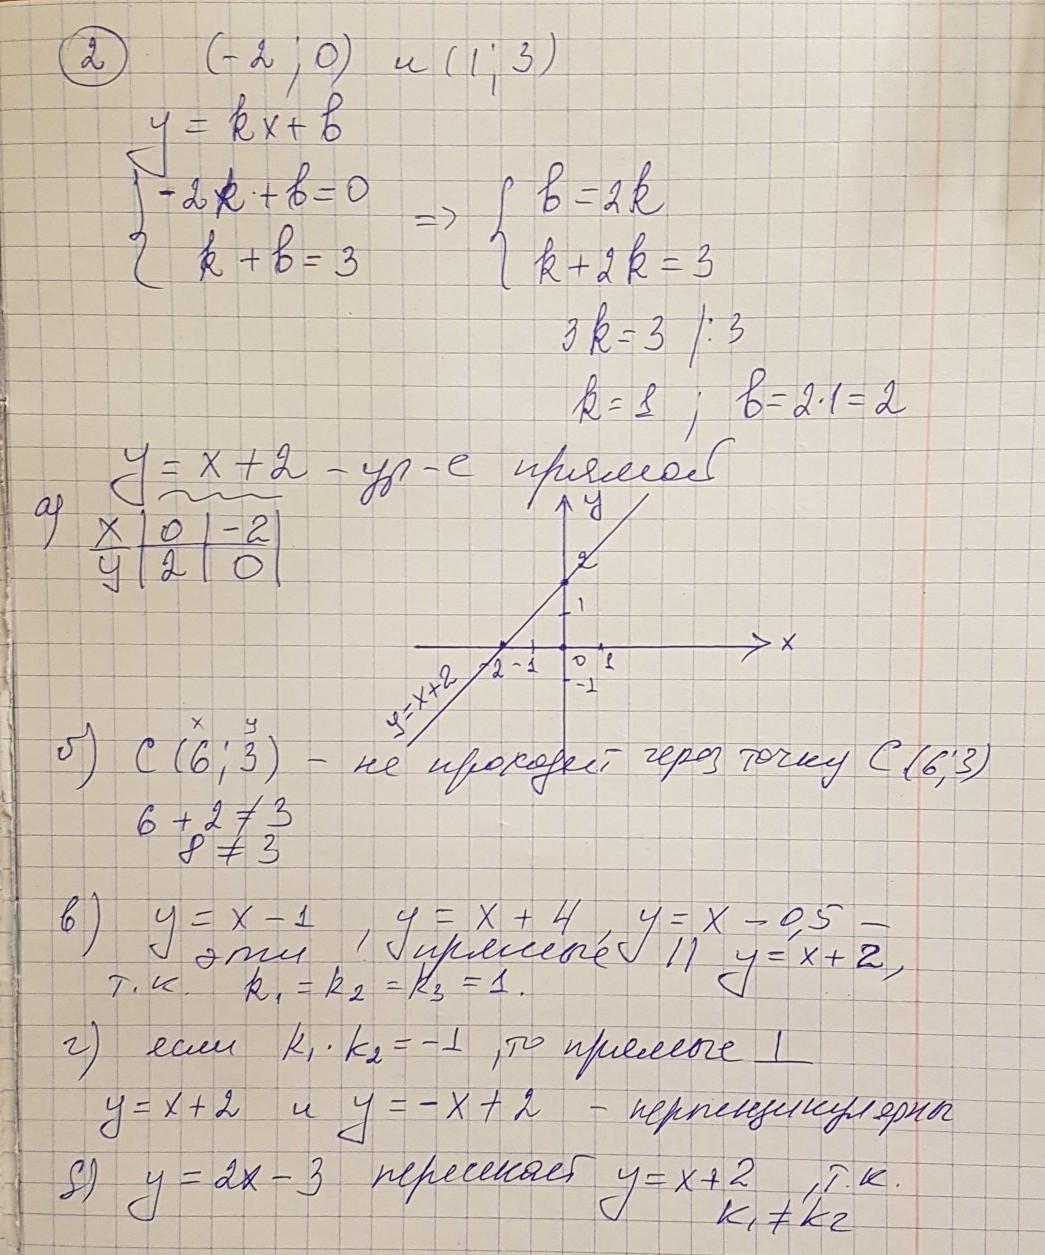 2 (-2; 0) и (1; 3)
y = kx + b
-2k + b = 0 => b = 2k
k + b = 3 k + 2k = 3
3k = 3 | : 3
k = 1 ; b = 2·1 = 2
y = x + 2 - ур-е прямой
а)
x | 0 | -2
y | 2 | 0
y
2
1
x
-2 -1 0 1
-1
y = x+2
x y
б) C (6; 3) - не проходит через точку C (6; 3)
6 + 2 ≠ 3
8 ≠ 3
в) y = x - 1 , y = x + 4, y = x - 0,5 -
эти прямые || y = x + 2,
т.к. k₁ = k₂ = k₃ = 1.
г) если k₁ · k₂ = -1 , то прямые ⊥
y = x + 2 и y = -x + 2 - перпендикулярны
д) y = 2x - 3 пересекает y = x + 2 , т.к.
k₁ ≠ k₂